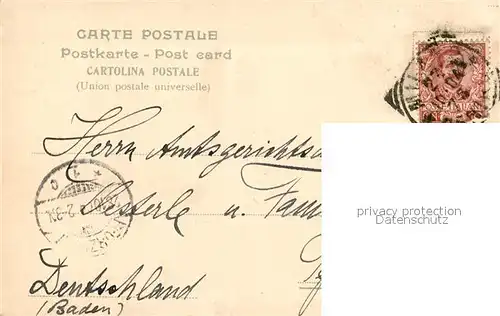 CARTE POSTALE
Postkarte - Post card
CARTOLINA POSTALE
(Union postale universelle)
Herrn Amtsgerichts
Oesterle u. Fam
privacy protection
Datenschutz
Deutschland
(Baden)